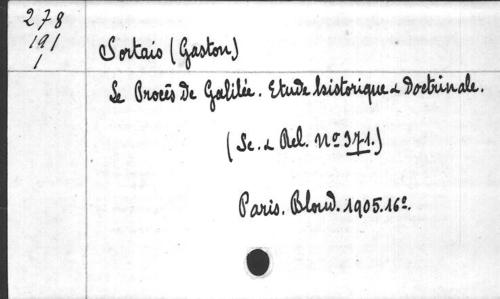 278
191
1
Sortais (Gaston)
Le Procès de Galilée. Etude historique & Doctrinale.
(Sc. & Rel. No 371.)
Paris. Bloud. 1905. 16o.